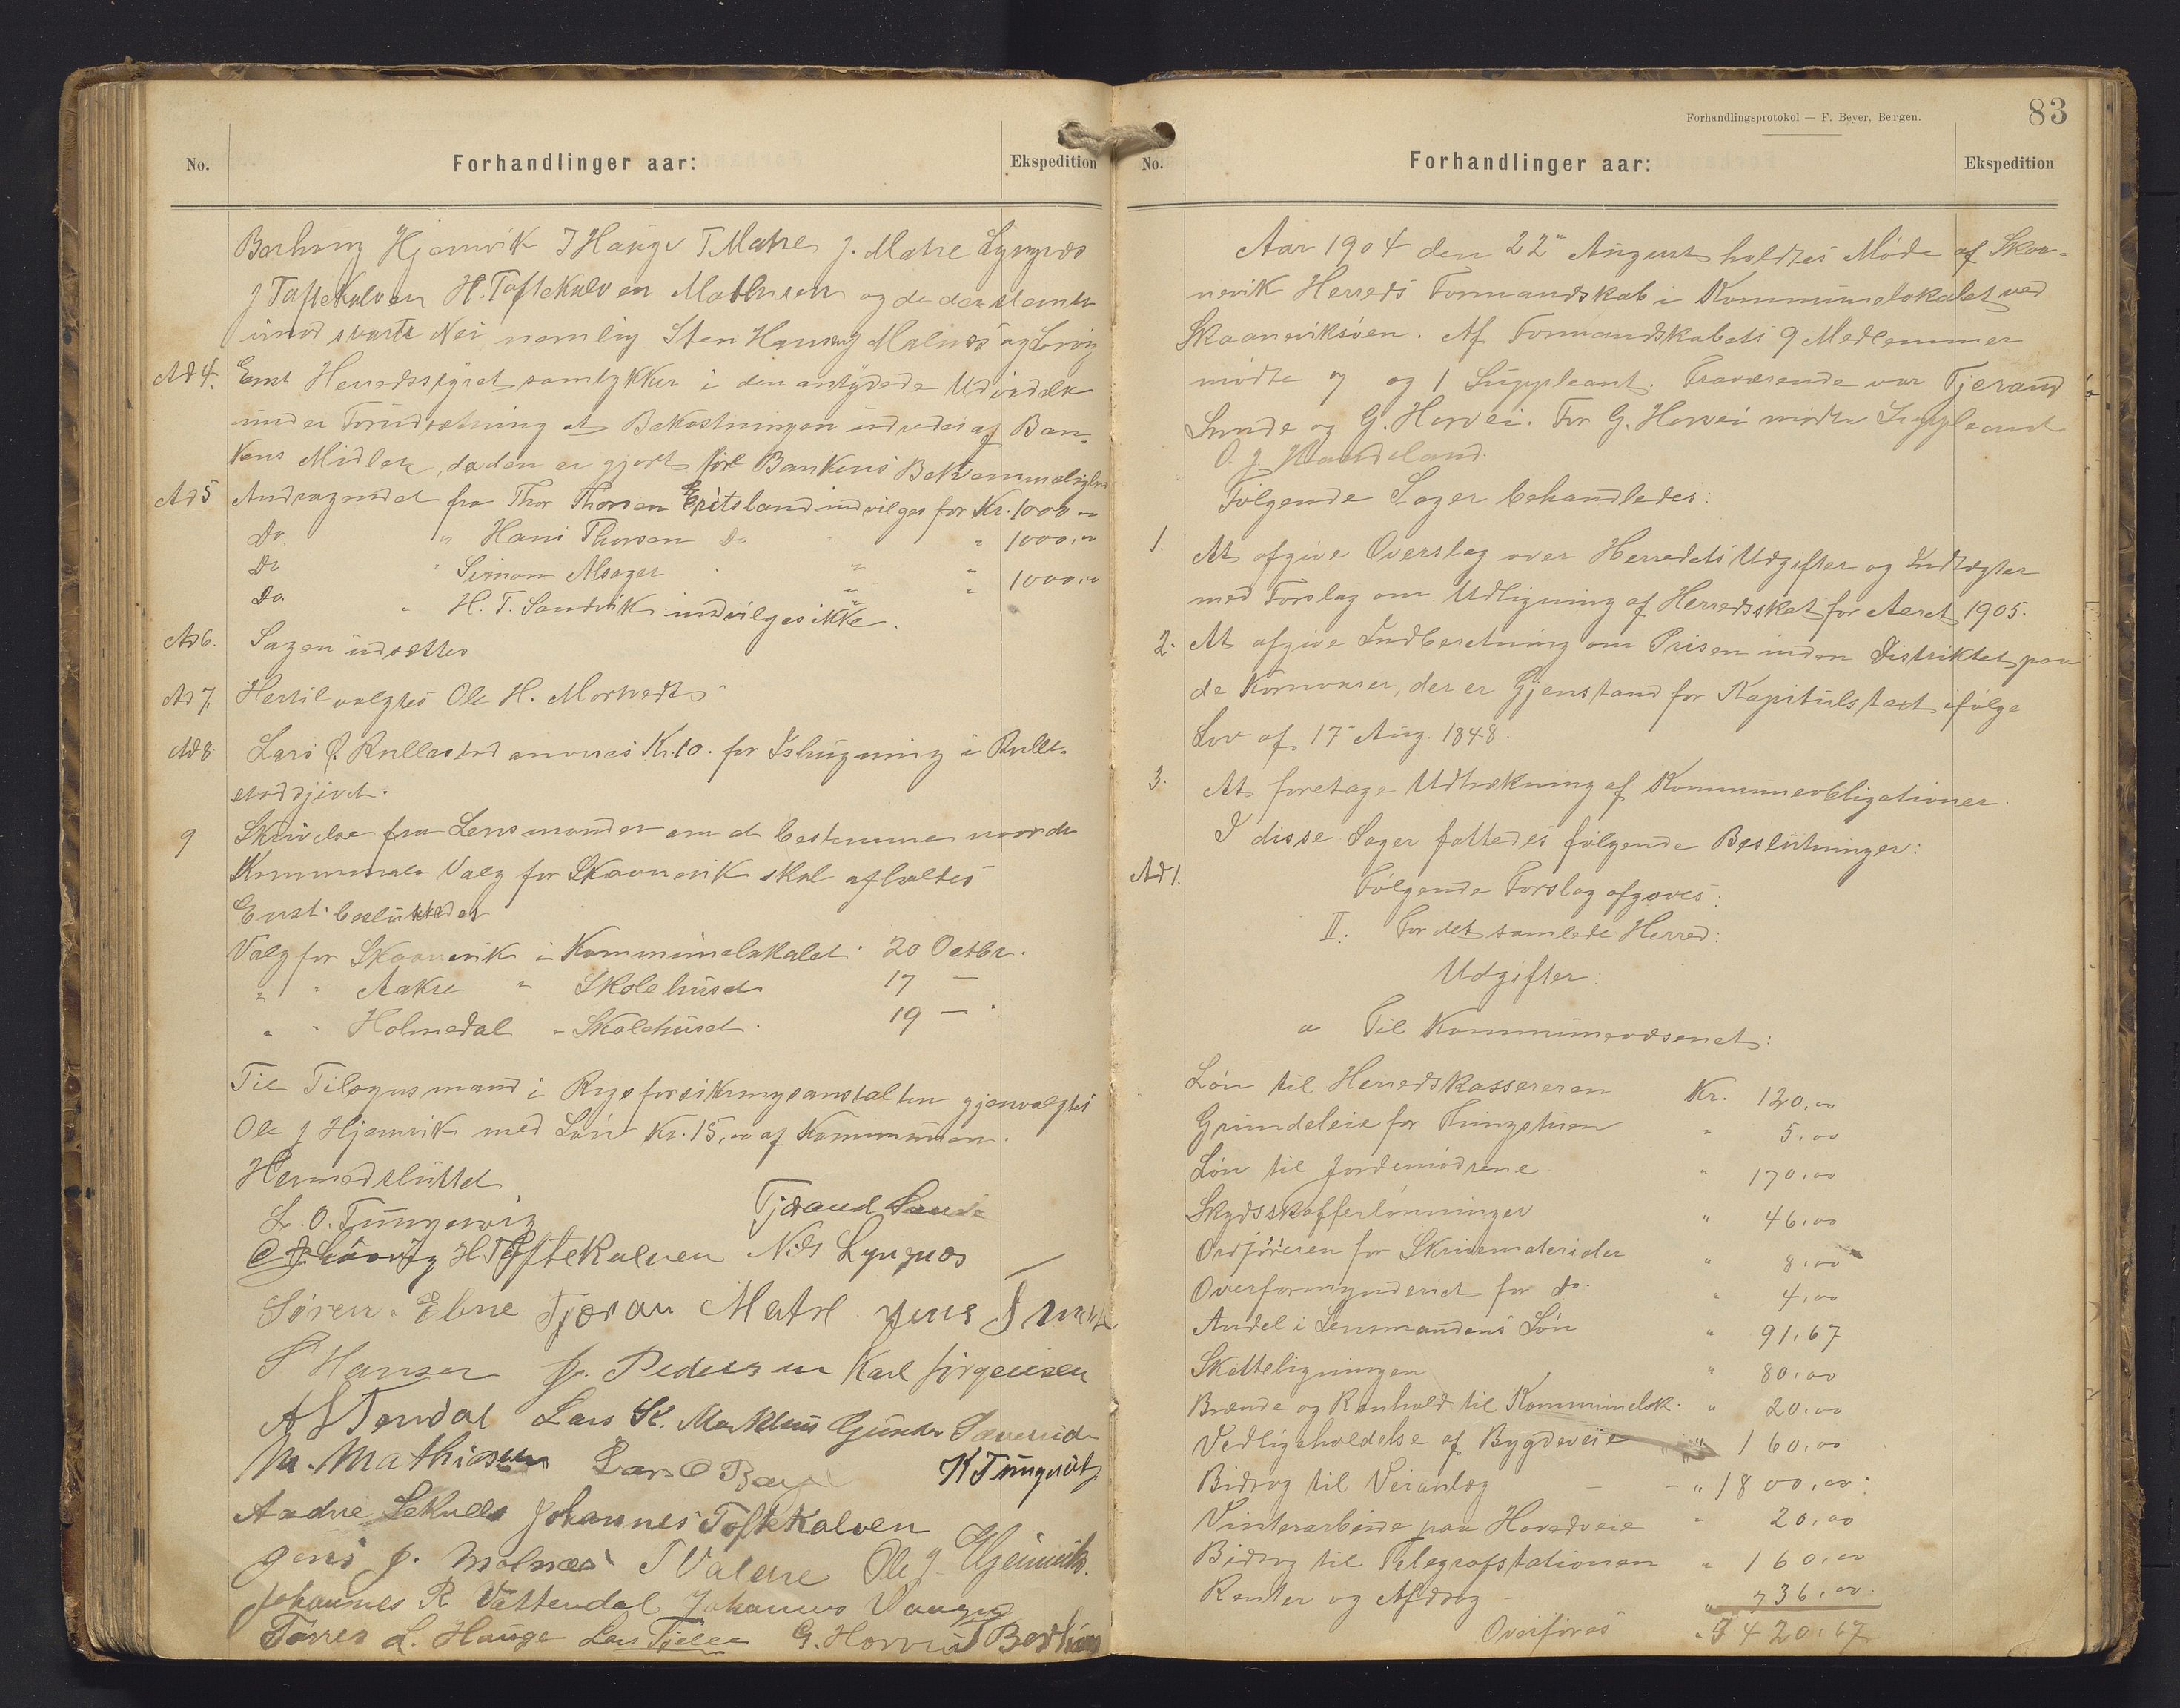 No. Forhandlinger aar: Ekspedition
Hjemvik T Hauge T Matre J. Matre Lyngnæs
J Toftekalven H. Toftekalven Mathisen og de der stemte
imod svarte Nei nemlig Sten Hansen J Molnes og Løvig
Ad 4. Enst Herredsstyret samtykker i den antydede Udvidelse
under Forudsætning at Bekostningen udredes af Ban-
kens Midler, da den er gjort for Bankens Bekvemmelighed
Ad 5 Andragendet fra Thor Thorsen Eritsland indvilges for Kr. 1000 "
Do. " Hans Thorsen Do " 1000,"
Do " Simon Alsager " " 1000,"
Do. " H. T. Sandvik indvilges ikke.
Ad 6. Sagen udsættes
Ad 7. Hertil valgtes Ole H. Mortvedt
Ad 8 Lars J. Rullestad anvises Kr. 10. for Ishugning i Rulle-
stadgjivet.
9 Skrivelse fra Lensmanden om at bestemme naar de
Kommunale Valg for Skaanevik skal afholdes
Enst. besluttedes
Valg for Skaanevik i Kommunelokalet 20 Octbr.
" " Aakre " Skolehuset 17 —
" " Holmedal " Skolehuset. 19 —
Til Tilsynsmand i Rigsforsikringsanstalten gjenvalgtes
Ole J Hjemvik med Løn Kr. 15,00 af Kommunen.
Hermed sluttet
L. O. Tungesvig Tjerand Sunde
H Toftekalven Nils Lyngnæs
Søren Ebne Tjeran Matre Jens
S Hansen J. Pedersen Karl Jørgensen
Lars K. Markhus Gunder Sæverud
M. Mathiasen Lars O K Tungesvik
Aadne Lekuell Johannes Toftekalven
Jens J. Molnæs T Valdre Ole J. Hjemvik.
Johannes R Vattendal Johannes Vaage
Tørres L. Hauge Lars Fjelle G. Horvei
Forhandlingsprotokol — F. Beyer, Bergen. 83
No. Forhandlinger aar: Ekspedition
Aar 1904 den 22" August holdtes Møde af Skaa-
nevik Herreds Formandskab i Kommunelokalet ved
Skaaneviksøen. Af Formandskabets 9 Medlemmer
mødte 7 og 1 Suppleant. Fraværende var Tjerand
Sunde og G. Horvei. For G. Horvei mødte Suppleant
O. J. Handeland.
Følgende Sager behandledes:
1. At afgive Overslag over Herredets Udgifter og Indtægter
med Forslag om Udligning af Herredsskat for Aaret 1905.
2. At afgive Indberetning om Prisen inden Distriktet paa
de Kornvarer, der er Gjenstand for Kapitulstaxt ifølge
Lov af 17 Aug. 1848.
3. At foretage Udtrækning af Kommuneobligationer.
I disse Sager fattedes følgende Beslutninger:
Ad 1. Følgende Forslag afgaves:
II. For det samlede Herred:
Udgifter:
a Til Kommunevæsenet:
Løn til Herredskassereren Kr. 120,00
Grundeleie for Thingstuen " 5,00
Løn til Jordemødrene " 170,00
Skydsskafferlønninger " 46,00
Ordføreren for Skrivematerialer " 8,00
Overformynderiet for do. " 4,00
Andel i Lensmandens Løn " 91,67
Skatteligningen " 80,00
Brænde og Renhold til Kommunelok. " 20,00
Vedligeholdelse af Bygdeveie " 160,00
Bidrag til Veianlæg — — " 1800,00
Vinterarbeide paa Hovedveie " 20,00
Bidrag til Telegrafstationen " 160,00
Renter og Afdrag — " 736,00
Overføres " 3420,67